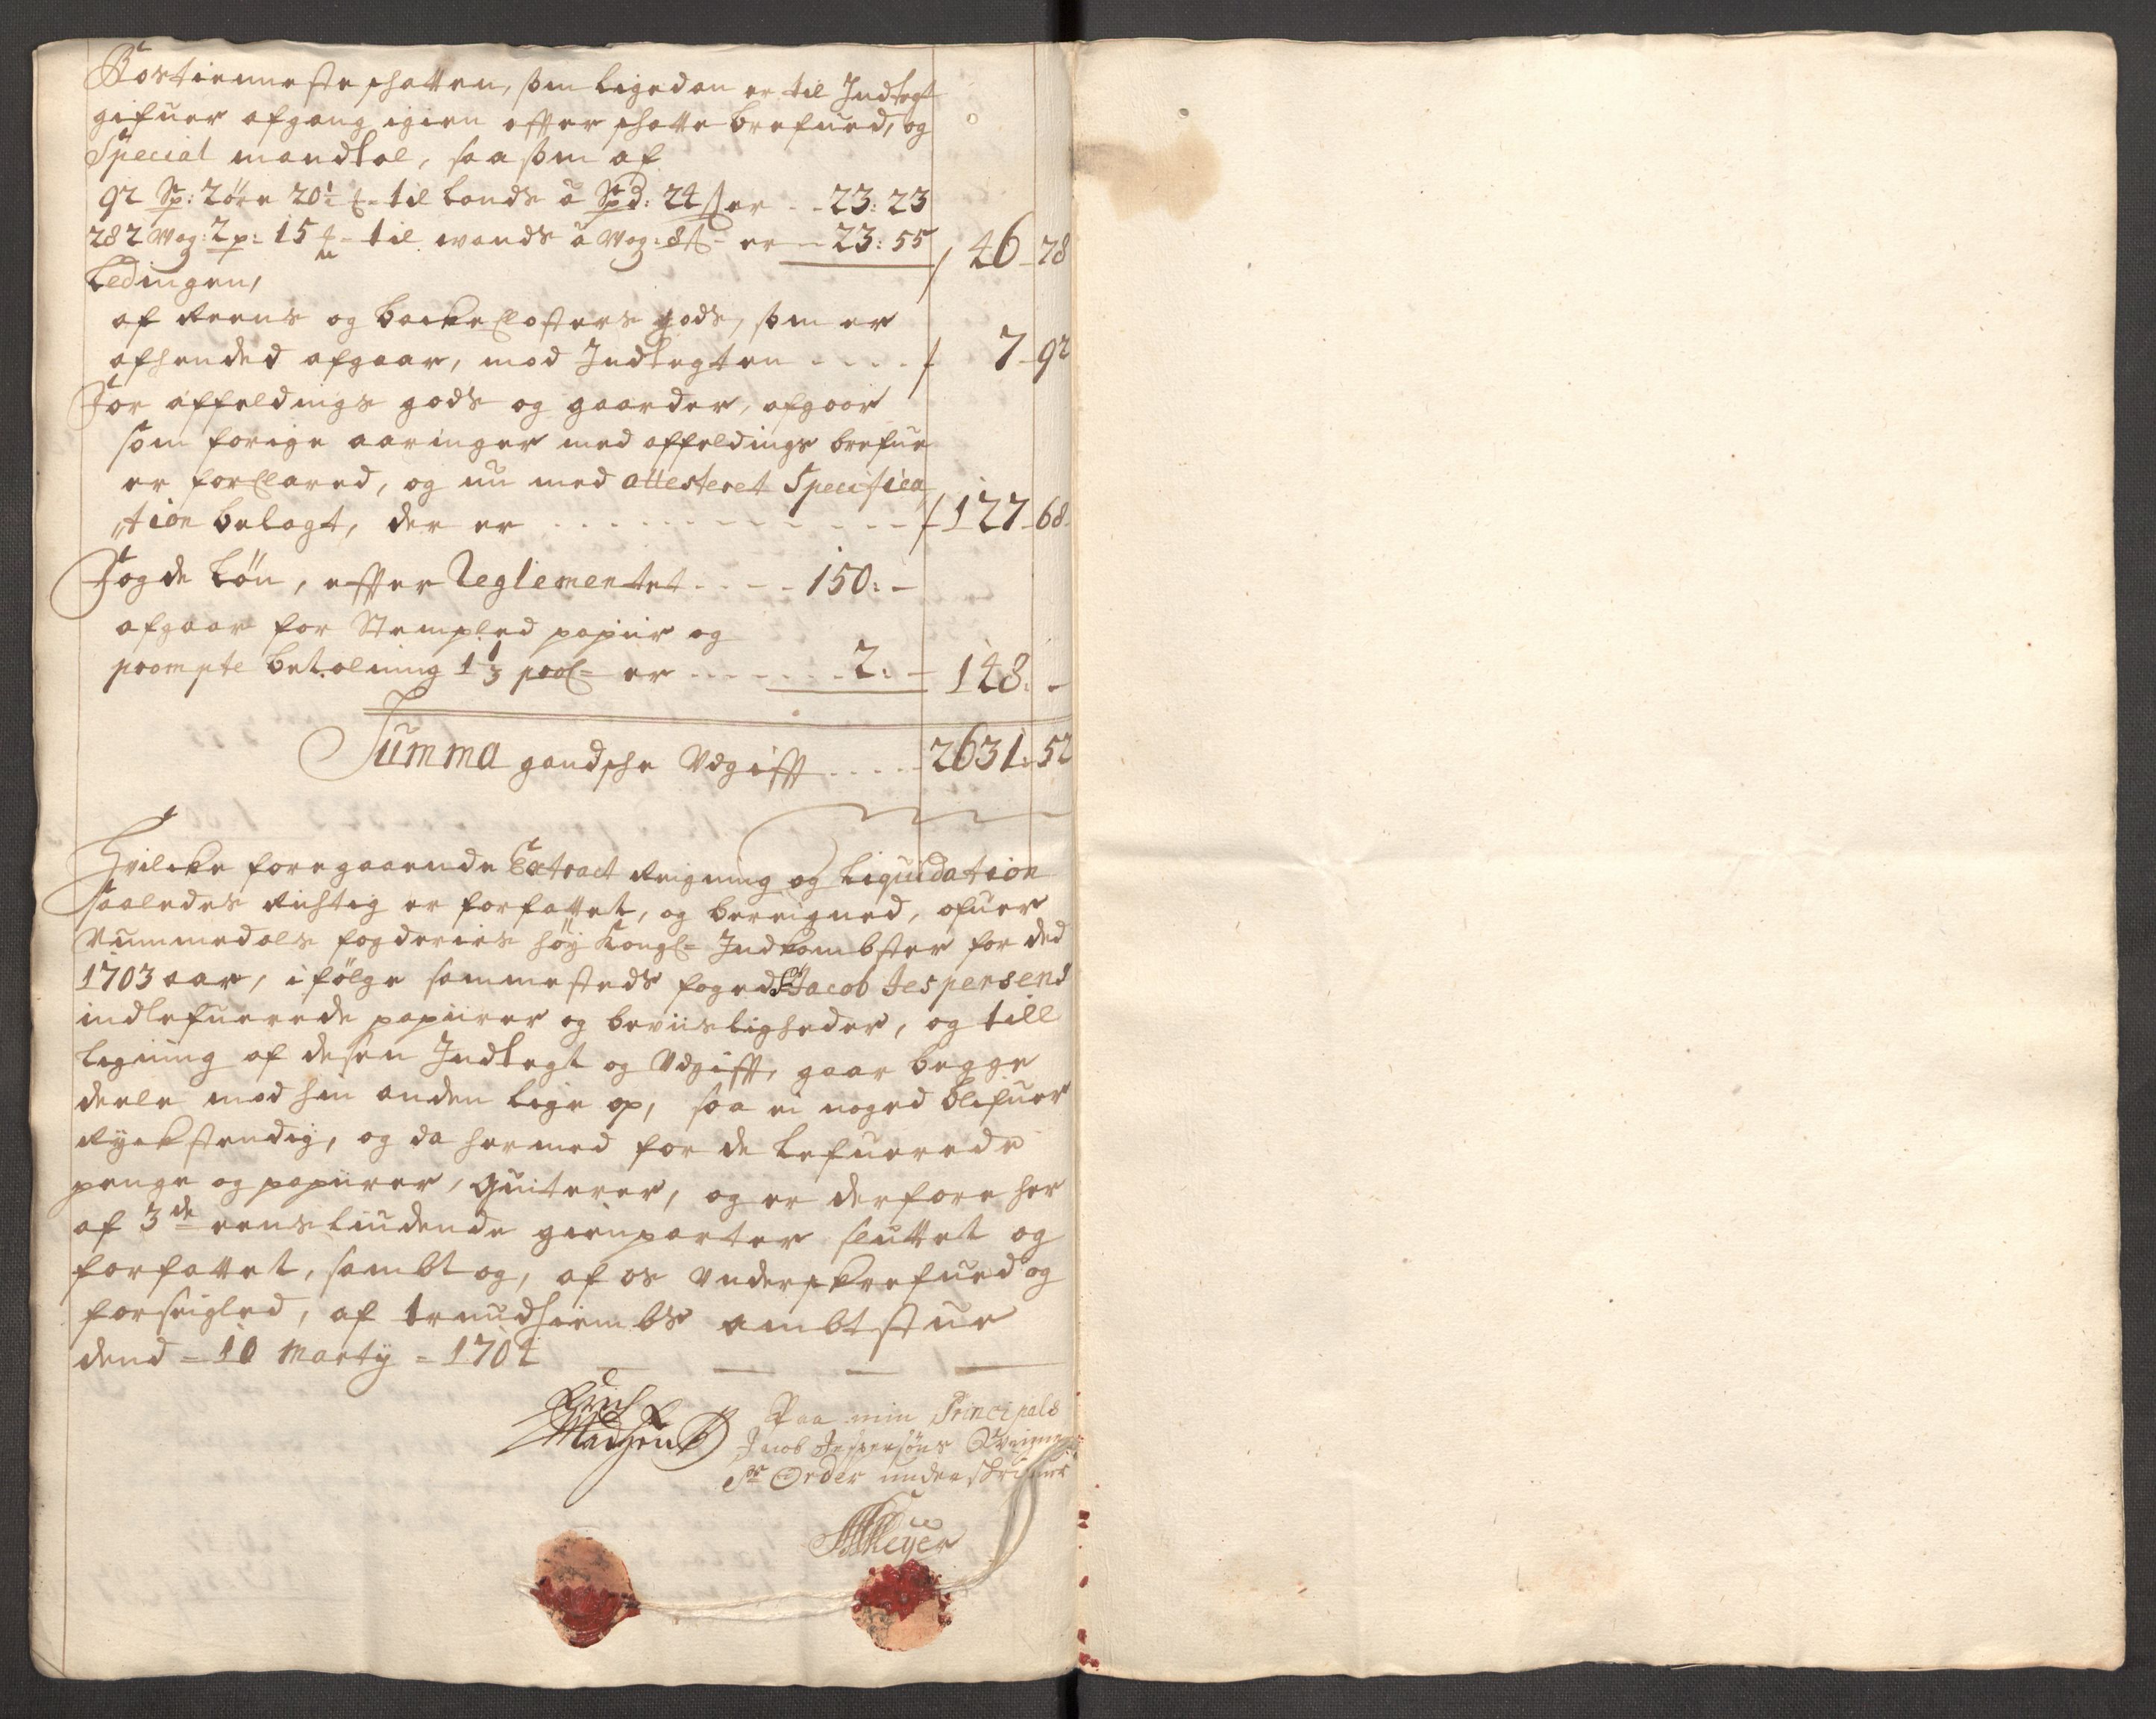 Rostienneste schatten, som ligedan er til Indtegt
gifuer afgang igien efter schatte brefued, og
Special mandtal, saasom af
92 Sp: 2öre 20½ - til lands â Spd: 24 s er - - 23: 23
282 Wog: 2 p: 15 - til wands â Wog: 8 s - er - 23: 55 / 46 - 78
Ledingen,
af Reens og backe closters gods, som er
afhended afgaar, mod Indtegten - - - - / 7 - 92
For affeldings gods og gaarder, afgaar
som forige aaringer med affeldings brefue
er forclared, og nu med attesteret Specifica
"tion belagt, der er - - - - - - - - - - - / 127 - 68
Fogde Løn, effter Reglementet - - - - 150: -
afgaar for Stempled papiir og
prompte betalning 1⅓ proC= er - - - - - - 2: - 148: -
Summa gandsche Udgifft - - - - 2631: 52
Hvilcke foregaaende Extract Reigning og Liquidation
saaledes Richtig er forfattet, og bereigned, ofuer
Nummedals fogderies höÿ Kongl= Indkombster for ded
1703 aar, i følge sammesteds foged Sr Jacob Jespersens
indlefuerede papiirer og beviisligheder, og till
ligning af desen Indtegt og Udgifft, gaar begge
deele mod hin anden lige op, saa ei noged blifuer
Ryckstendig, og da hermed for de lefuerede
penge og papiirer, quiterer, og er derfore her
af 3de eensliudende gienparter sluttet og
forfattet, sambt og, af os Underskrefued og
forseigled, af trundhiembs ambtstue
dend = 10 Martÿ = 1704
Erich Madsen
Paa min Principals
Jacob Jespersöns Weigne
pr Order underskrifuer
Meÿer